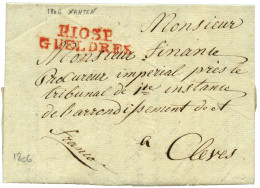 1806 XANTEN
P103P
GUELDRES
Monsieur
Monsieur Finante
Procureur impérial près le
tribunal de 1re instance
de l'arrondissement de et
a Cleves
franco
1806